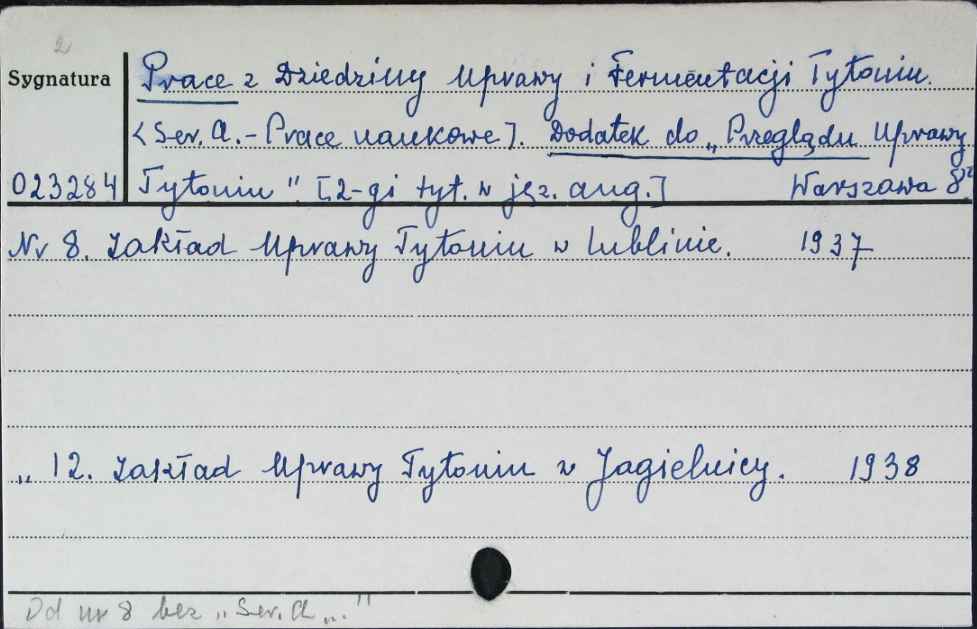 2
Sygnatura
Prace z Dziedziny Uprawy i Fermentacji Tytoniu.
<Ser. A. - Prace naukowe]. Dodatek do „Przeglądu Uprawy
023284 Tytoniu" [2-gi tyt. w jęz. ang.] Warszawa 8°
Nr 8. Zakład Uprawy Tytoniu w Lublinie. 1937
„ 12. Zakład Uprawy Tytoniu w Jagielnicy. 1938
Od nr 8 bez „Ser. A..."